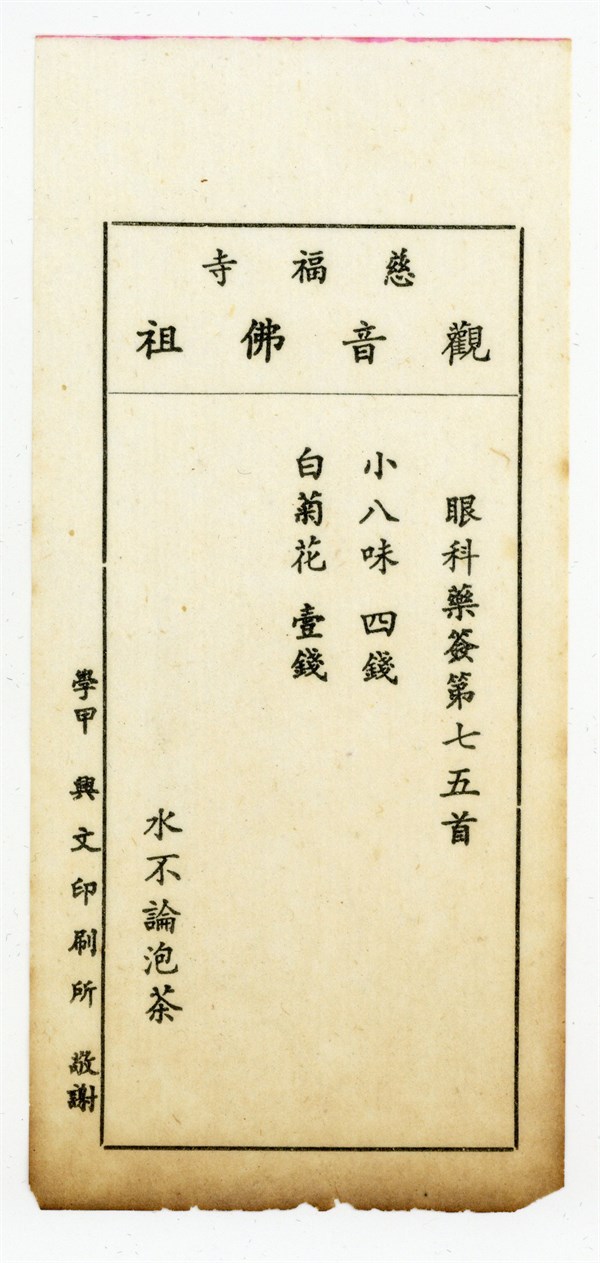 慈福寺
觀音佛祖
眼科藥簽第七五首
小八味 四錢
白菊花 壹錢
水不論泡茶
學甲 興文印刷所 敬謝